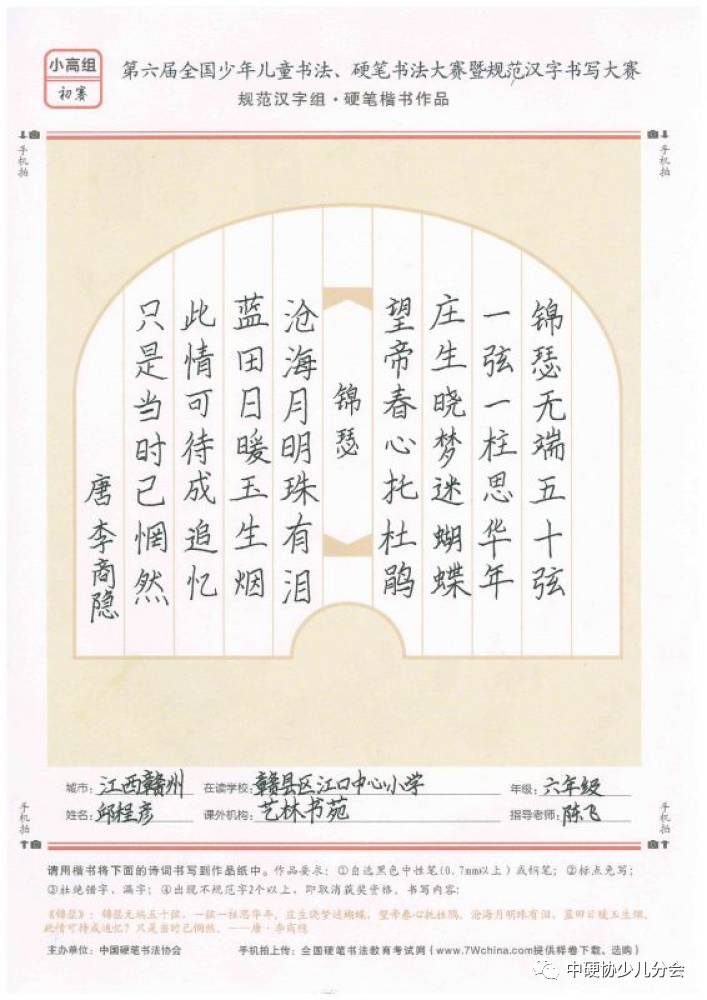 小高组
初赛
第六届全国少年儿童书法、硬笔书法大赛暨规范汉字书写大赛
规范汉字组·硬笔楷书作品
手机拍
手机拍
锦瑟无端五十弦
一弦一柱思华年
庄生晓梦迷蝴蝶
望帝春心托杜鹃
锦瑟
沧海月明珠有泪
蓝田日暖玉生烟
此情可待成追忆
只是当时已惘然
唐 李商隐
城市:江西赣州 在读学校:赣县区江口中心小学 年级:六年级
姓名:邱程彦 课外机构:艺林书苑 指导老师:陈飞
手机拍
手机拍
请用楷书将下面的诗词书写到作品纸中。作品要求:①自选黑色中性笔(0.7mm以上)或钢笔;②标点免写;
③杜绝错字、漏字;④出现不规范字2个以上,即取消获奖资格。书写内容:
《锦瑟》:锦瑟无端五十弦,一弦一柱思华年。庄生晓梦迷蝴蝶,望帝春心托杜鹃。沧海月明珠有泪,蓝田日暖玉生烟。
此情可待成追忆?只是当时已惘然。——唐·李商隐
主办单位:中国硬笔书法协会 手机拍上传:全国硬笔书法教育考试网(www.7Wchina.com提供样卷下载、选购)
中硬协少儿分会